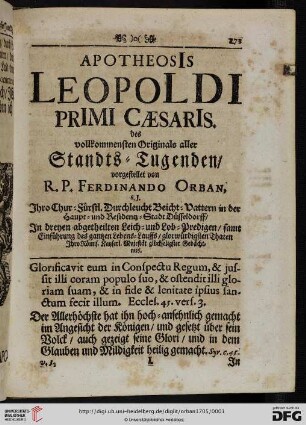 271
APOTHEOSIS
LEOPOLDI
PRIMI CÆSARIS.
des
vollkommensten Originals aller
Standts-Tugenden/
vorgestellet von
R. P. FERDINANDO ORBAN,
S. J.
Ihro Chur-Fürstl. Durchleucht Beicht-Vattern in der
Haupt- und Residentz-Stadt Düsseldorff/
In dreyen abgetheilten Leich- und Lob-Predigen/ samt
Einführung des gantzen Lebens-Lauffs/ glorwürdigsten Thaten
Ihro Röm. Kayserl. Majestät glückseligster Gedächt-
nus.
Glorificavit eum in Conspectu Regum, & jus-
sit illi coram populo suo, & ostendit illi glo-
riam suam, & in fide & lenitate ipsius san-
ctum fecit illum. Eccles. 45. vers. 3.
Der Allerhöchste hat ihn hoch-ansehnlich gemacht
im Angesicht der Königen/ und gesetzt über sein
Volck/ auch gezeigt seine Glori/ und in dem
Glauben und Mildigkeit heilig gemacht. Syr. c. 45.
L
In
http://digi.ub.uni-heidelberg.de/diglit/orban1705/0001
© Universitätsbibliothek Heidelberg
UNIVERSITÄTS-
BIBLIOTHEK
HEIDELBERG
gefördert durch die
DFG